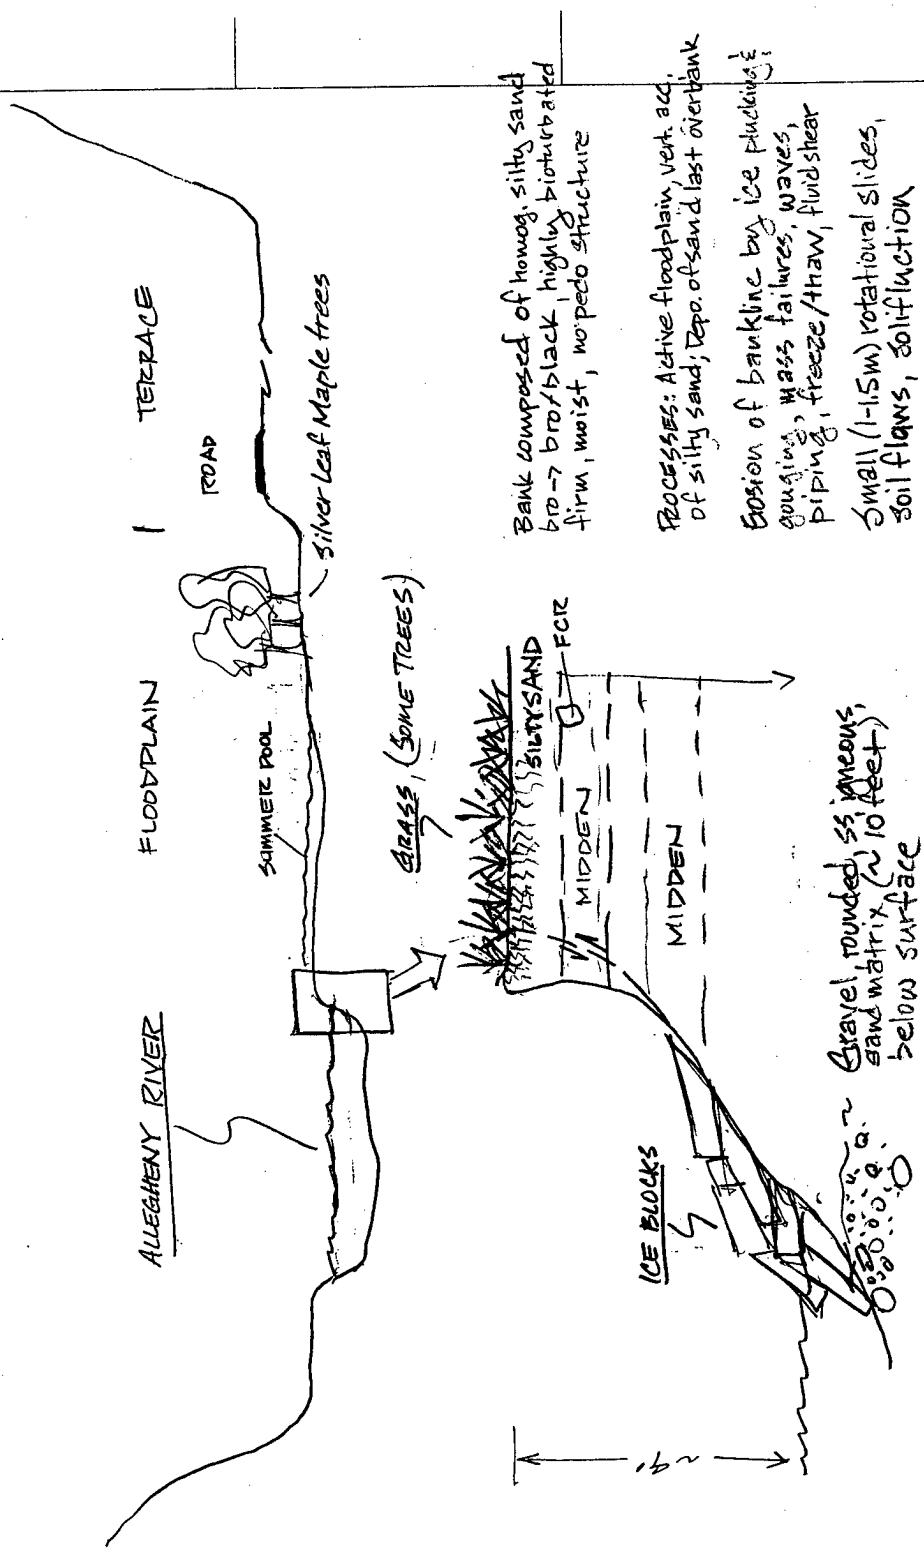 ALLEGHENY RIVER
FLOODPLAIN
TERRACE
SUMMER POOL
ROAD
Silver Leaf Maple trees
GRASS, (SOME TREES)
SILTY SAND
MIDDEN
FCR
MIDDEN
ICE BLOCKS
~9'
Gravel, rounded, ss igneous,
sand matrix (~10 feet)
below surface
Bank composed of homog. silty sand
bro -> bro/black, highly bioturbated
firm, moist, no pedo structure
PROCESSES: Active floodplain, vert. acc.
of silty sand; Depo. of sand last overbank
Erosion of bankline by ice plucking &
gouging, mass failures, waves,
piping, freeze/thaw, fluid shear
Small (1-1.5m) rotational slides,
soil flows, solifluction